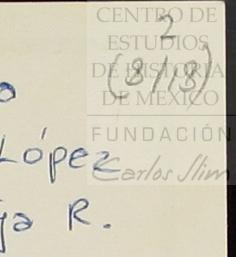 CENTRO DE
ESTUDIOS
DE HISTORIA
DE MÉXICO
FUNDACIÓN
Carlos Slim
2
(8/18)
o
López
ja R.